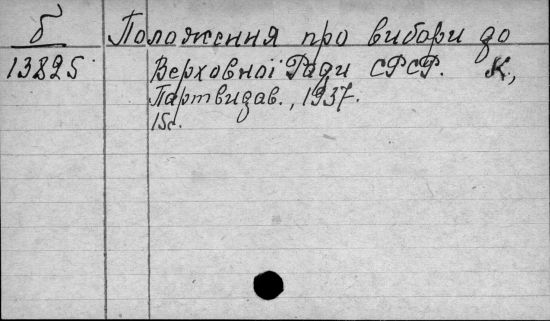 б Положення про вибори до
13825 Верховної Ради СРСР. К,
Партвидав., 1937.
15с.